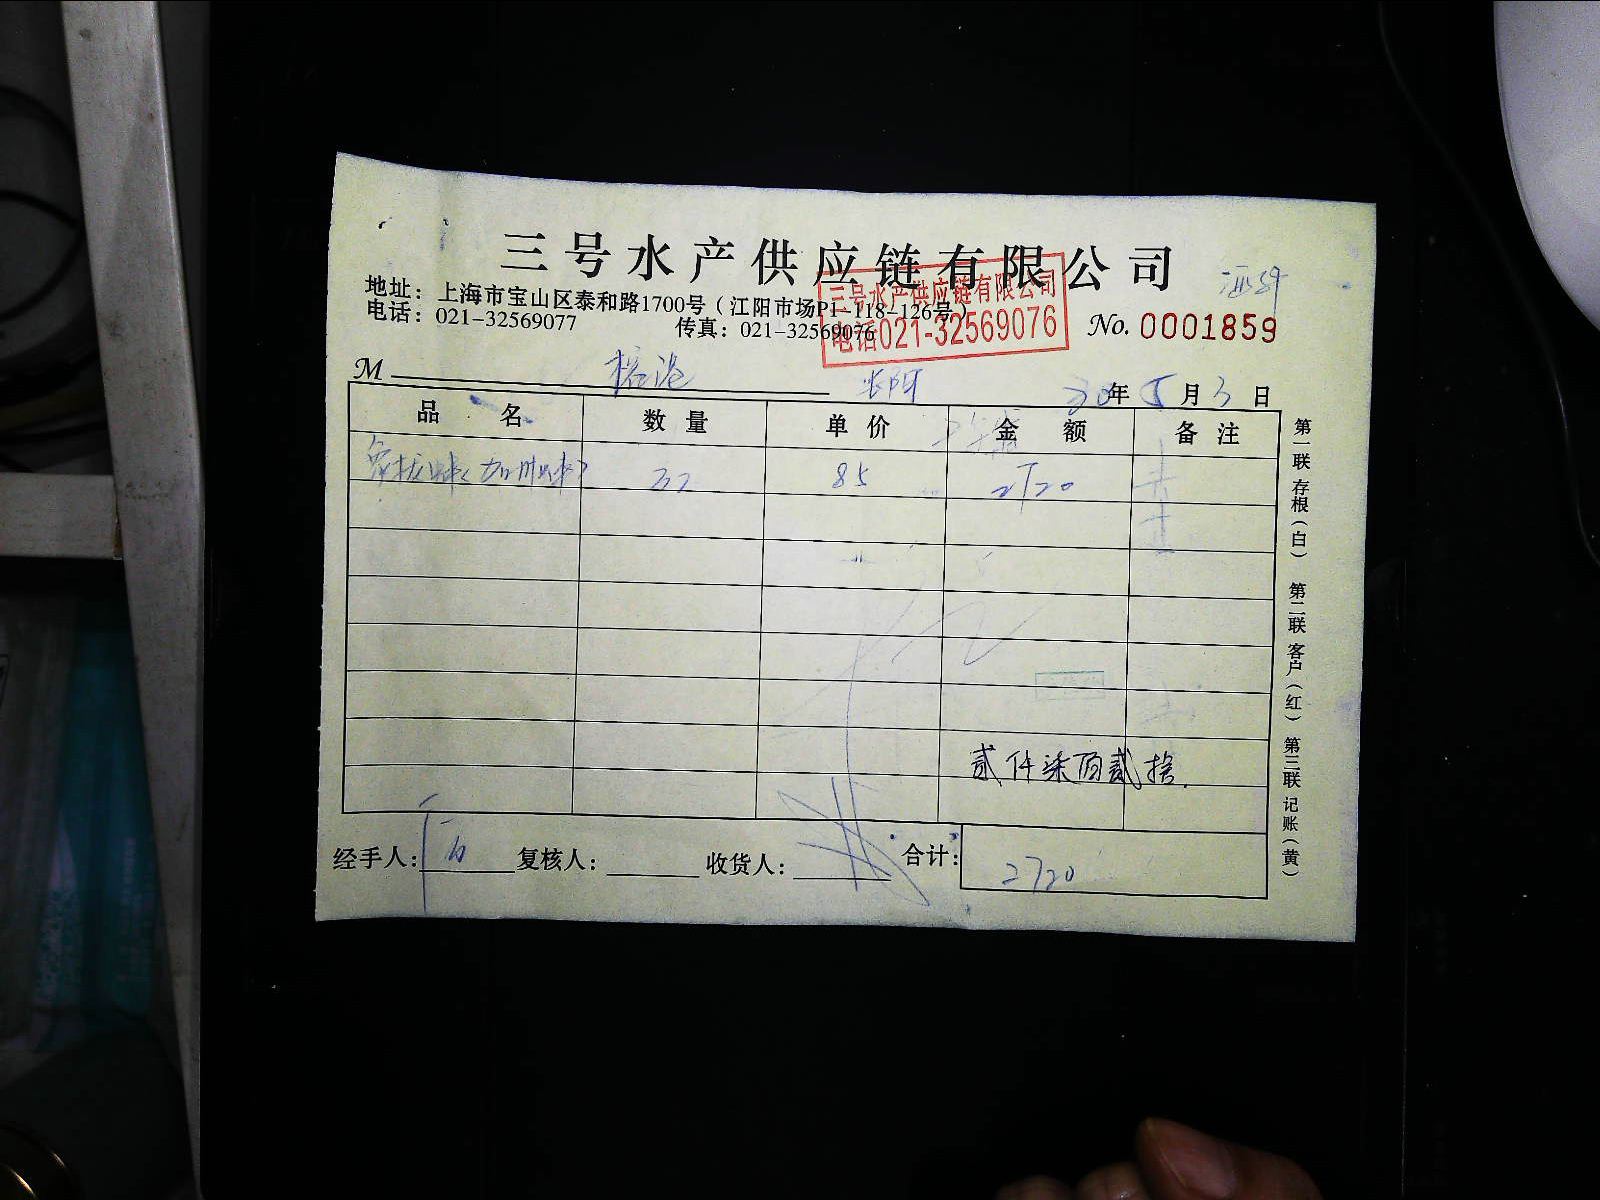 三号水产供应链有限公司
地址：上海市宝山区泰和路1700号（江阳市场P1-118-126号）
电话：021-32569077 传真：021-32569076
三号水产供应链有限公司
电话021-32569076
No. 0001859
M
年5月3日
品名 数量 单价 金额 备注
85 2720
贰仟柒佰贰拾
经手人： 复核人： 收货人： 合计： 2720
第一联 存根（白） 第二联 客户（红） 第三联 记账（黄）